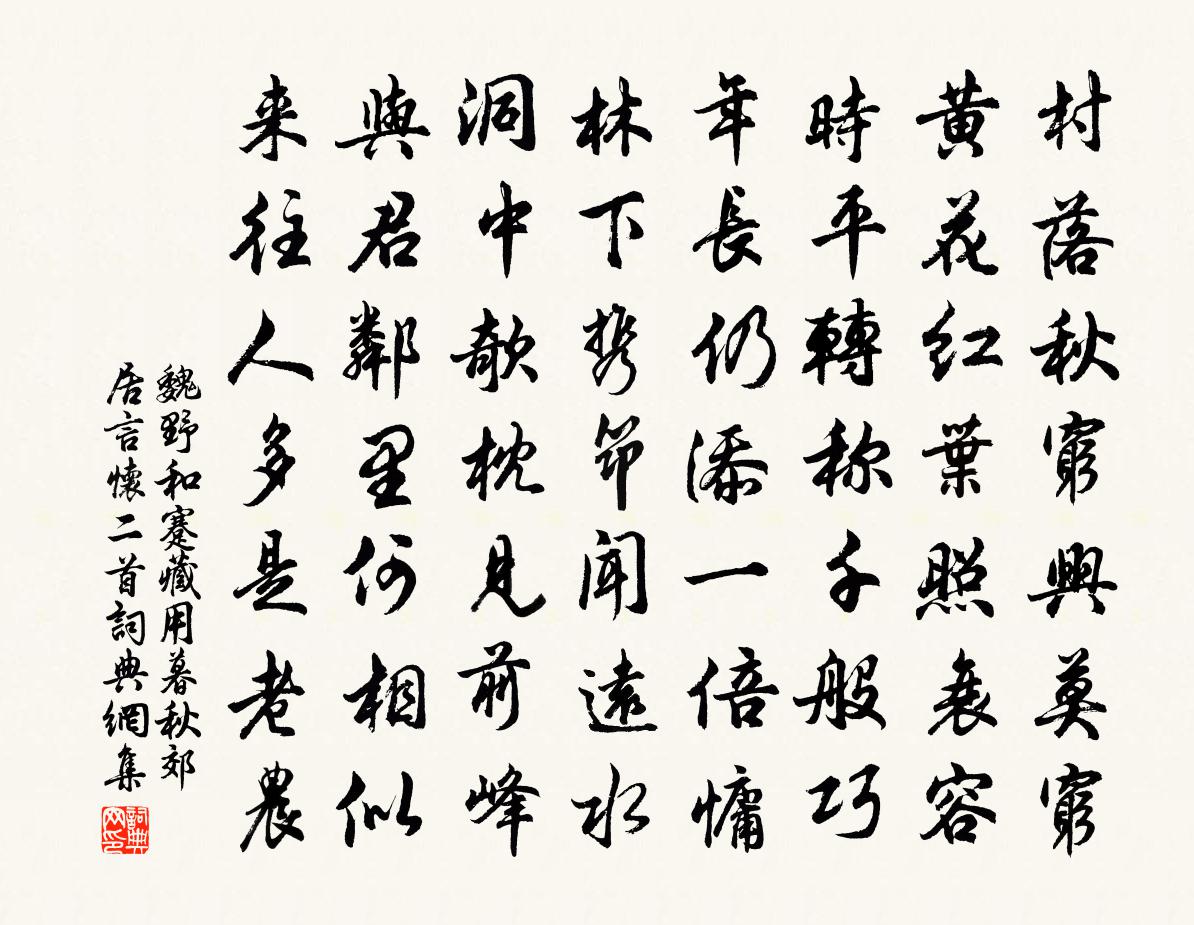 村落秋窮興莫窮
黄花紅葉照衰容
時平轉称千般巧
年長仍添一倍慵
林下携筇聞遠水
洞中欹枕見前峰
與君鄰里何相似
来往人多是老農
魏野和蹇藏用暮秋郊
居言懷二首詞典網集
詞典
网印